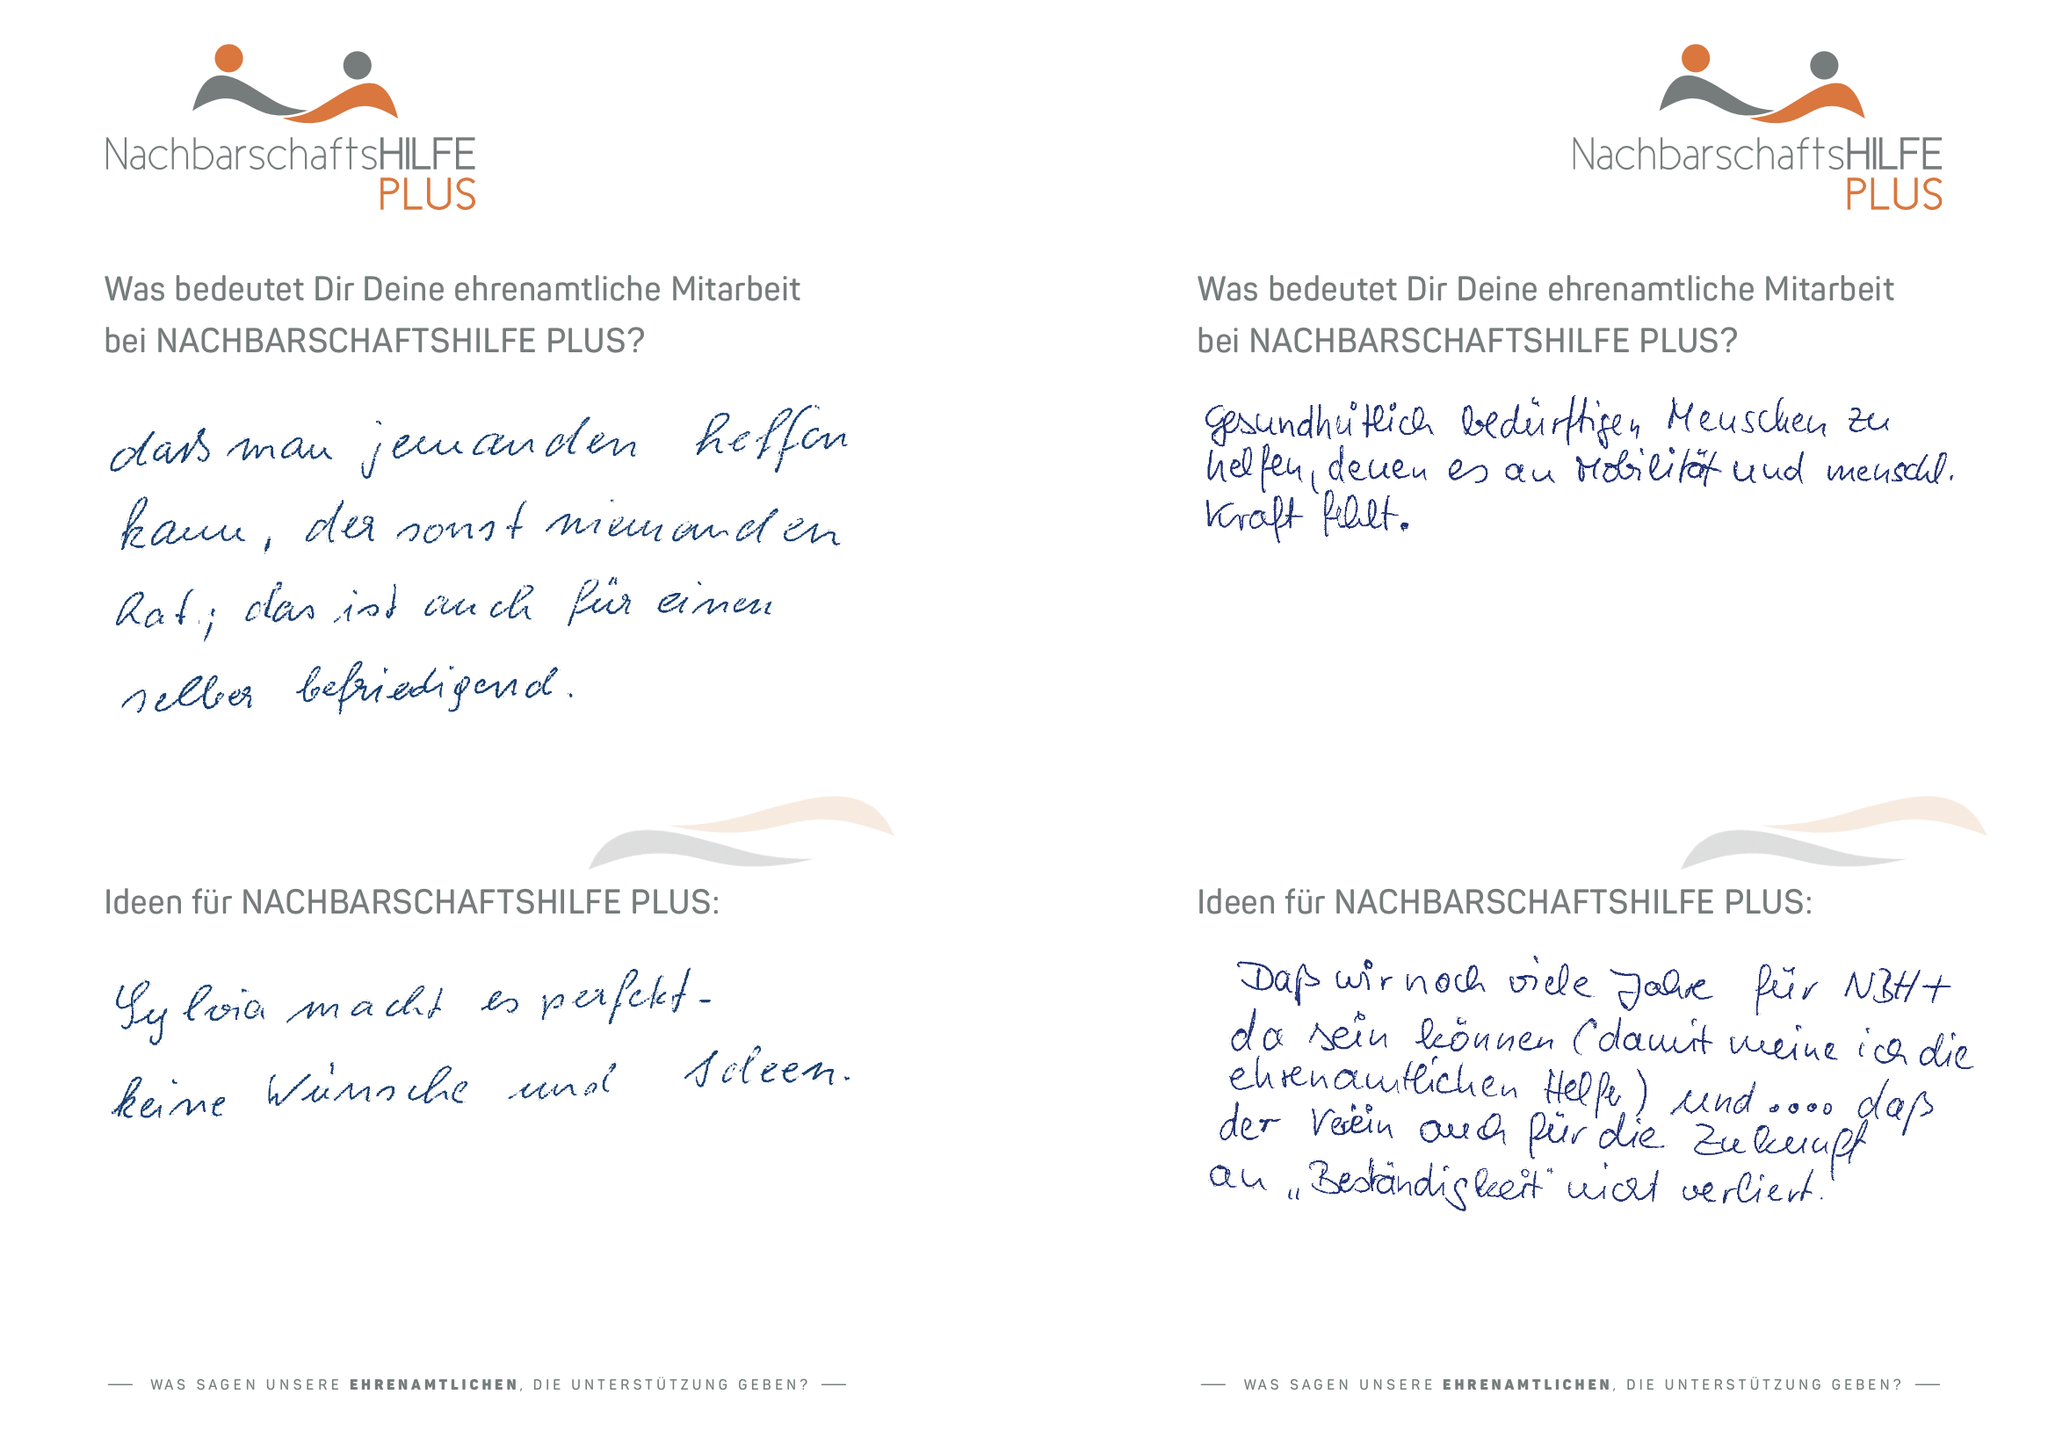 NachbarschaftsHILFE
PLUS
Was bedeutet Dir Deine ehrenamtliche Mitarbeit
bei NACHBARSCHAFTSHILFE PLUS?
daß man jemanden helfen
kann, der sonst niemanden
hat; das ist auch für einen
selber befriedigend.
Ideen für NACHBARSCHAFTSHILFE PLUS:
Sylvia macht es perfekt-
keine Wünsche und Ideen.
— WAS SAGEN UNSERE EHRENAMTLICHEN, DIE UNTERSTÜTZUNG GEBEN? —
NachbarschaftsHILFE
PLUS
Was bedeutet Dir Deine ehrenamtliche Mitarbeit
bei NACHBARSCHAFTSHILFE PLUS?
Gesundheitlich bedürftigen Menschen zu
helfen, denen es an Mobilität und menschl.
Kraft fehlt.
Ideen für NACHBARSCHAFTSHILFE PLUS:
Daß wir noch viele Jahre für NBH+
da sein können (damit meine ich die
ehrenamtlichen Helfer) und .... daß
der Verein auch für die Zukunft
an „Beständigkeit" nicht verliert.
— WAS SAGEN UNSERE EHRENAMTLICHEN, DIE UNTERSTÜTZUNG GEBEN? —